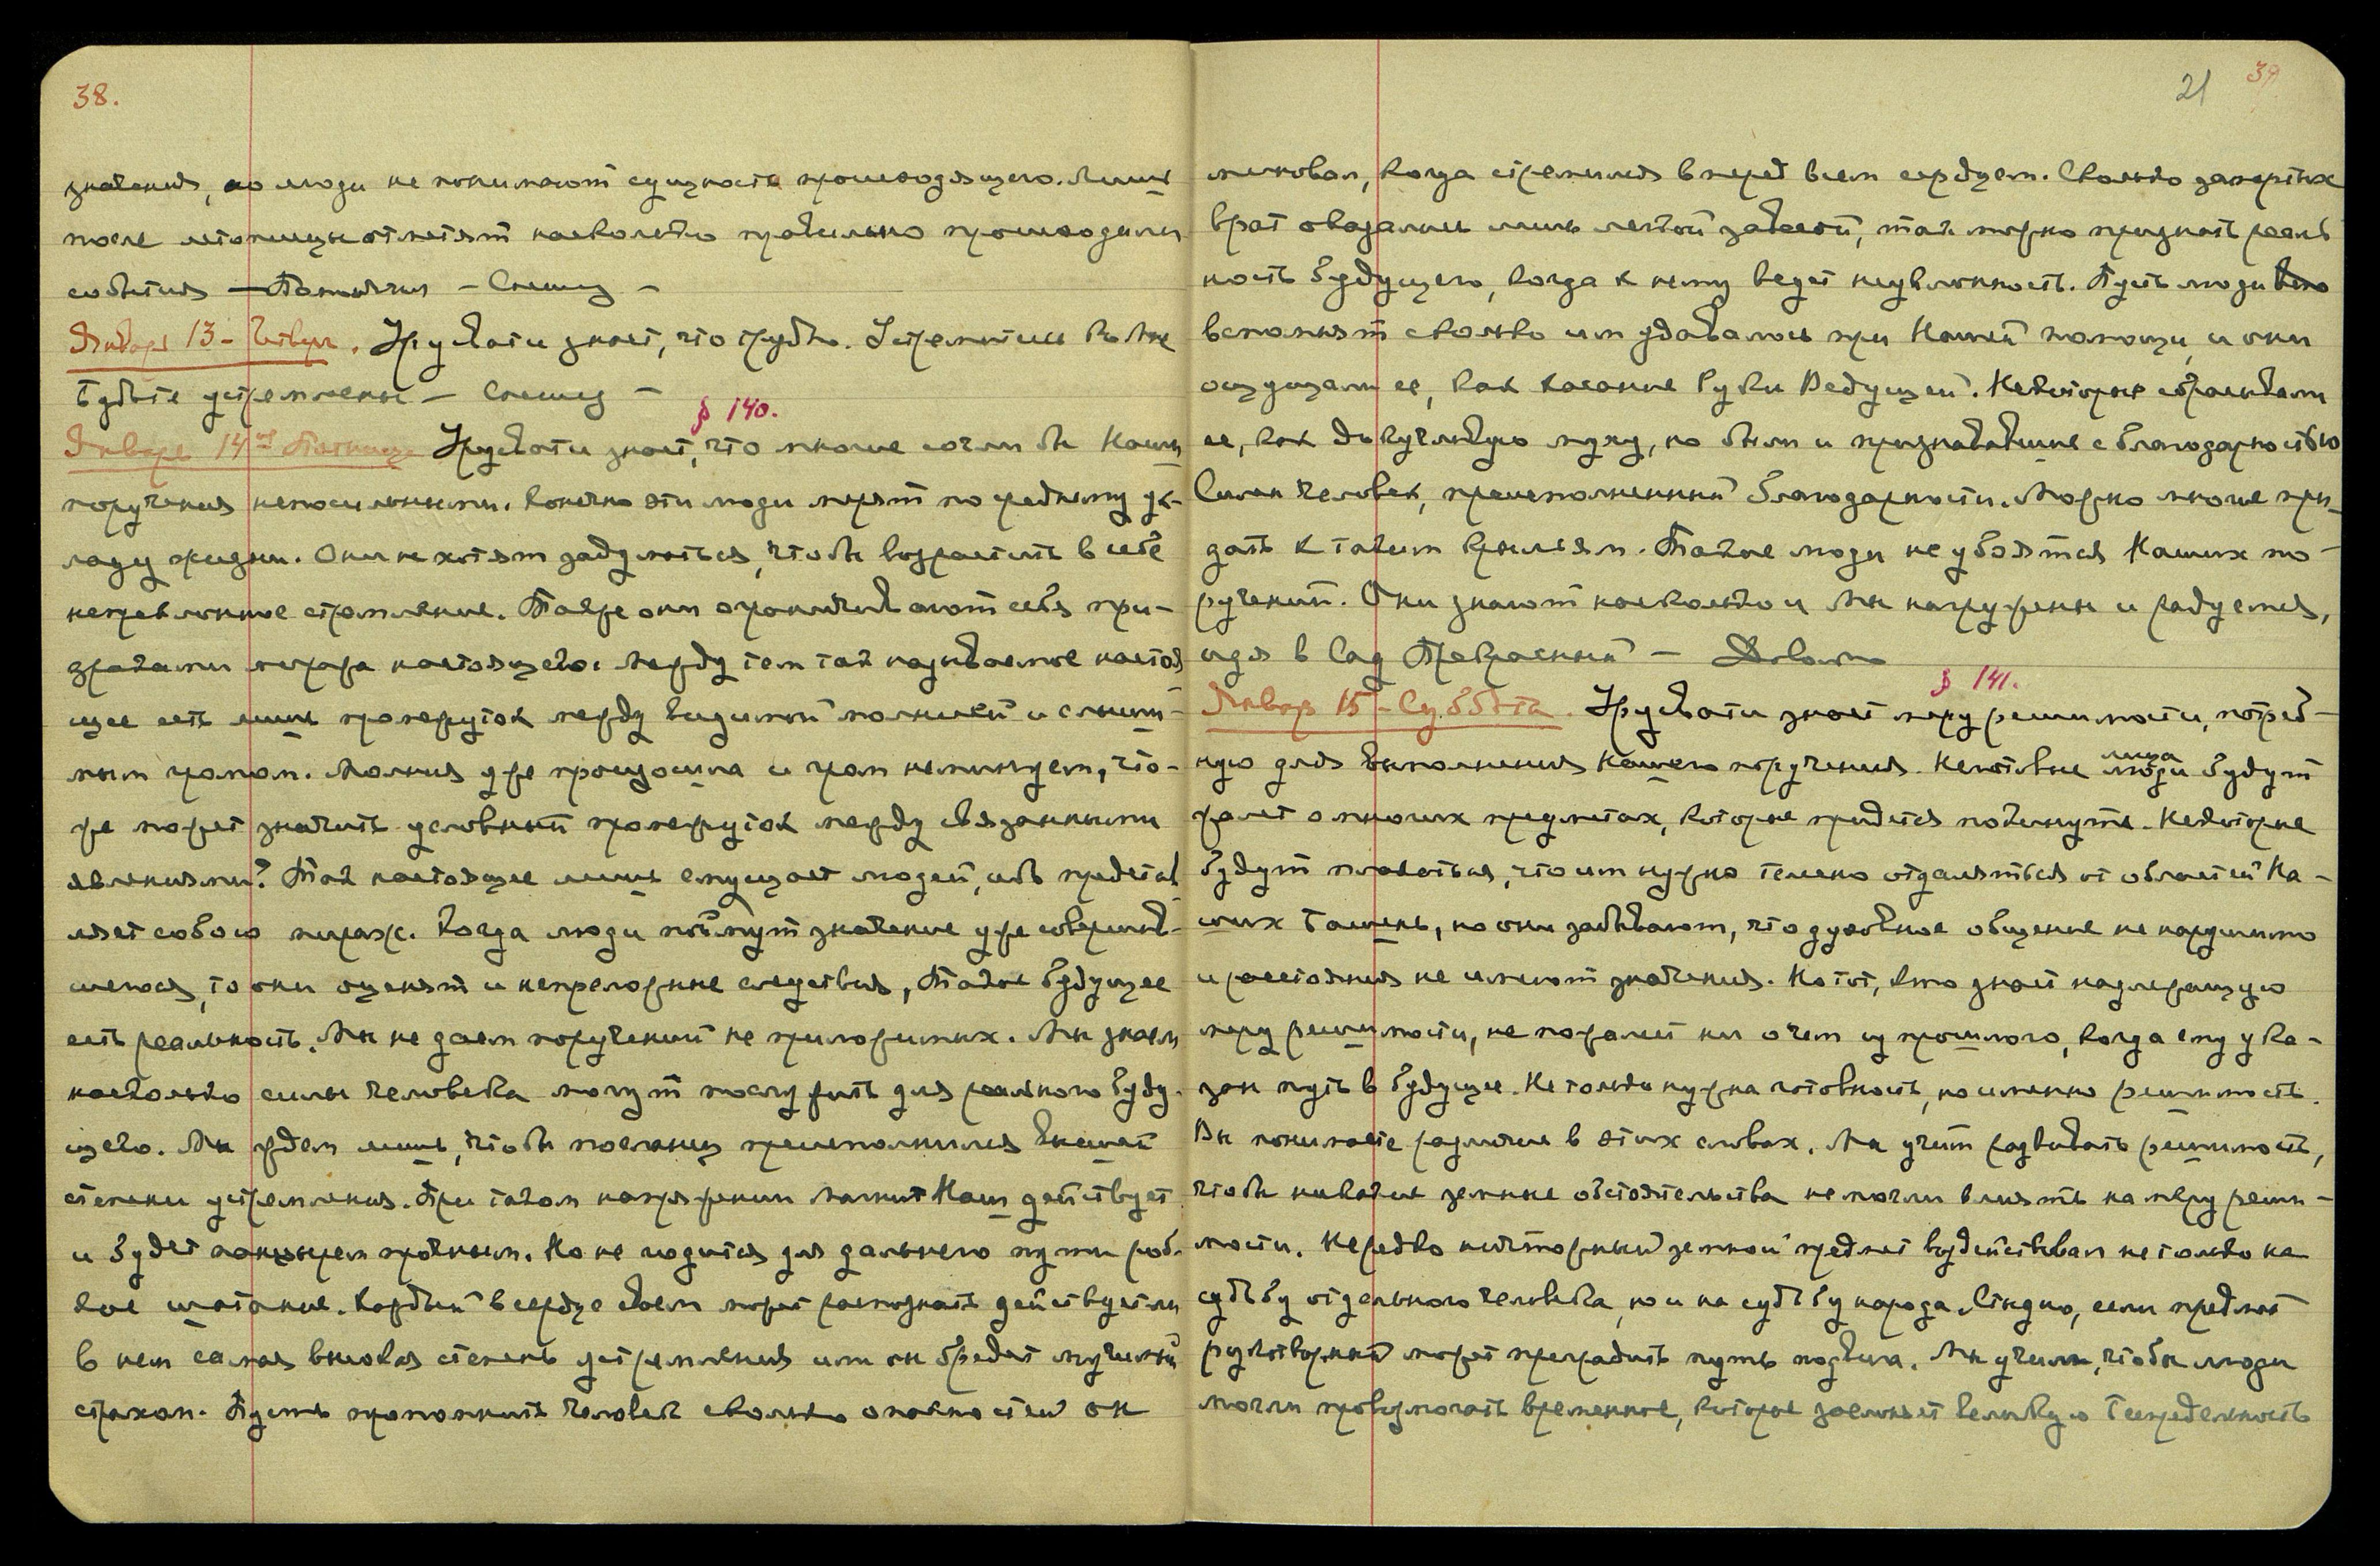 38.
значения, но люди не понимают сущность происходящего. Лишь
после летописцы отметят насколько правильно происходили
события — – Спешу –
Января 13 – Четверг. Урусвати знает, что трубно. Устремитесь ко Мне
Будьте устремлены – Спешу –
§ 140.
Января 14ое Пятница Урусвати знает, что многие сочли бы Наши
поручения непосильными. Конечно эти люди мерят по среднему ук-
ладу жизни. Они не хотят задуматься, чтобы возрастить в себе
непреклонное стремление. Также они ограничивают себя при-
зраками миража настоящего. Между тем так называемое настоя
щее есть лишь промежуток между видимой молнией и слыши-
мым громом. Молния уже произошла и гром неминуем, что-
же может значить условный промежуток между связанными
явлениями? Так настоящее лишь смущает людей, ибо представ
ляет собою мираж. Когда люди поймут значение уже совершив-
шегося, то они оценят и непреложные следствия, Такое будущее
есть реальность. Мы не даем поручений не приложимых. Мы знаем
насколько силы человека могут послужить для реального буду-
щего. Мы ждем лишь, чтобы посланец преисполнился высшей
степени устремления. При таком напряжении магнит Наш действует
и будет панцырем прочным. Но не годится для дальнего пути роб-
кое шатание. Каждый в сердце своем может распознать действует ли
в нем самая высокая степень устремления или он бредет мучимый
страхом. Пусть припомнит человек сколько опасностей он
21 39
миновал, когда стремился вперед всем сердцем. Сколько запертых
врат оказались лишь легкой завесой, так можно признать реаль
ность будущего, когда к нему ведет неуклонность. Пусть люди
вспомнят сколько им удавалось при Нашей помощи, и они
ощущали ее, как касание Руки Ведущей. Некоторые сбрасывали
ее, как докучливую муху, но были и признававшие с благодарностью
Силен человек, преисполненный благодарности. Можно многое при-
дать к таким крыльям. Такие люди не убоятся Наших по-
ручений. Они знают насколько и Мы нагружены и радуемся,
идя в Сад Прекрасный – Довольно
§ 141.
Январ 15 – Суббота. Урусвати знает меру решимости, потреб-
ную для выполнения Нашего поручения. Неготовые люди лица будут
жалеть о многих предметах, которые придется покинуть. Некоторые
будут плакаться, что им нужно телесно отдаляться от областей На-
ших Башень, но они забывают, что духовное общение не нарушимо
и расстояния не имеют значения. Но тот, кто знает надлежащую
меру решимости, не пожалеет ни о чем из прошлого, когда ему ука-
зан путь в будущее. Не только нужна готовность, но именно решимость.
Вы понимаете различие в этих словах. Мы учим развивать решимость,
чтобы никакие земные обстоятельства не могли влиять на меру реши-
мости. Нередко ничтожный земной предмет воздействовал не только на
судьбу отдельного человека, но и на судьбу народа. Стыдно, если предмет
рукотворный может преградить путь подвига. Мы учим, чтобы люди
могли превозмогать временное, которое заслоняет великую Беспредельность